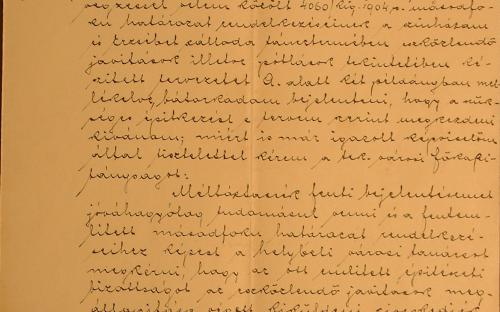 végzéssel velem közölt 4060/kig. 1904 sz. másodfo-
kú határozat rendelkezéseinek a szinházam
és Erzsébet szálloda táncztermében eszközlendő
javitások illetve pótlások tekintetében ké-
szitett tervezetet A. alatt két példányban mel-
lékelve, bátorkodom bejelenteni, hogy a szük-
séges épitkezést e tervem szerint megkezdeni
kivánom; miért is már igazolt képviselőm
által tisztelettel kérem a tek. városi főkapi-
tányságot:
Méltóztassék fenti bejelentésemet
jóváhagyólag tudomásul venni és a fentem-
litett másodfokú határozat rendelkezé-
seihez képest a helybeli városi tanácsot
megkérni, hogy az ott emlitett épitészeti
bizottságot az eszközlendő javitások meg-
állapitása végett kiküldeni sziveskedjék